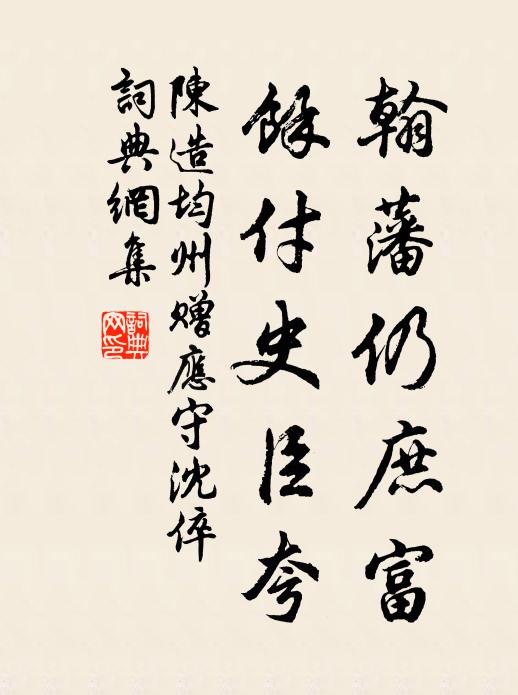 翰藩仍庶富
餘付史臣夸
陳造均州贈應守沈倅
詞典網集
詞典網印